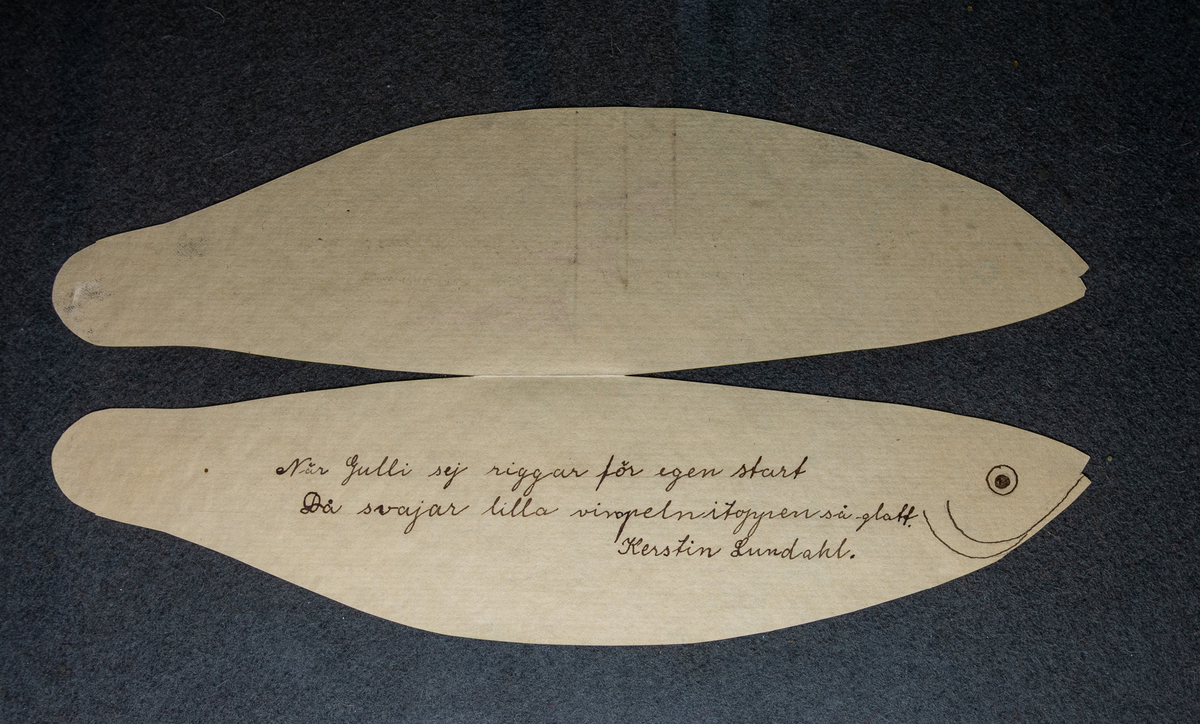 När Gulli sej riggar för egen start
Då svajar lilla vimpeln i toppen så glatt.
Kerstin Lundahl.